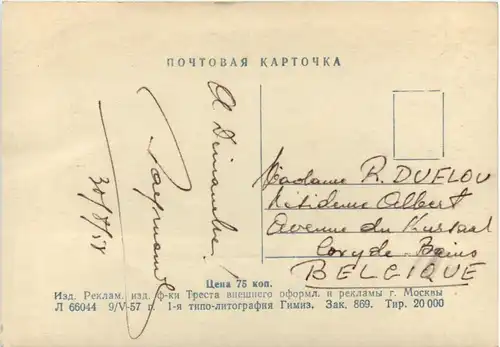 ПОЧТОВАЯ КАРТОЧКА
A Dimanche!
Raymond
30/8/58
Madame R. DUELOU
Résidence Albert
Avenue du Kursaal
Coxyde-Bains
BELGIQUE
Цена 75 коп.
Изд. Реклам. изд. ф-ки Треста внешнего оформл. и рекламы г. Москвы
Л 66044 9/V-57 г. 1-я типо-литография Гимиз. Зак. 869. Тир. 20 000